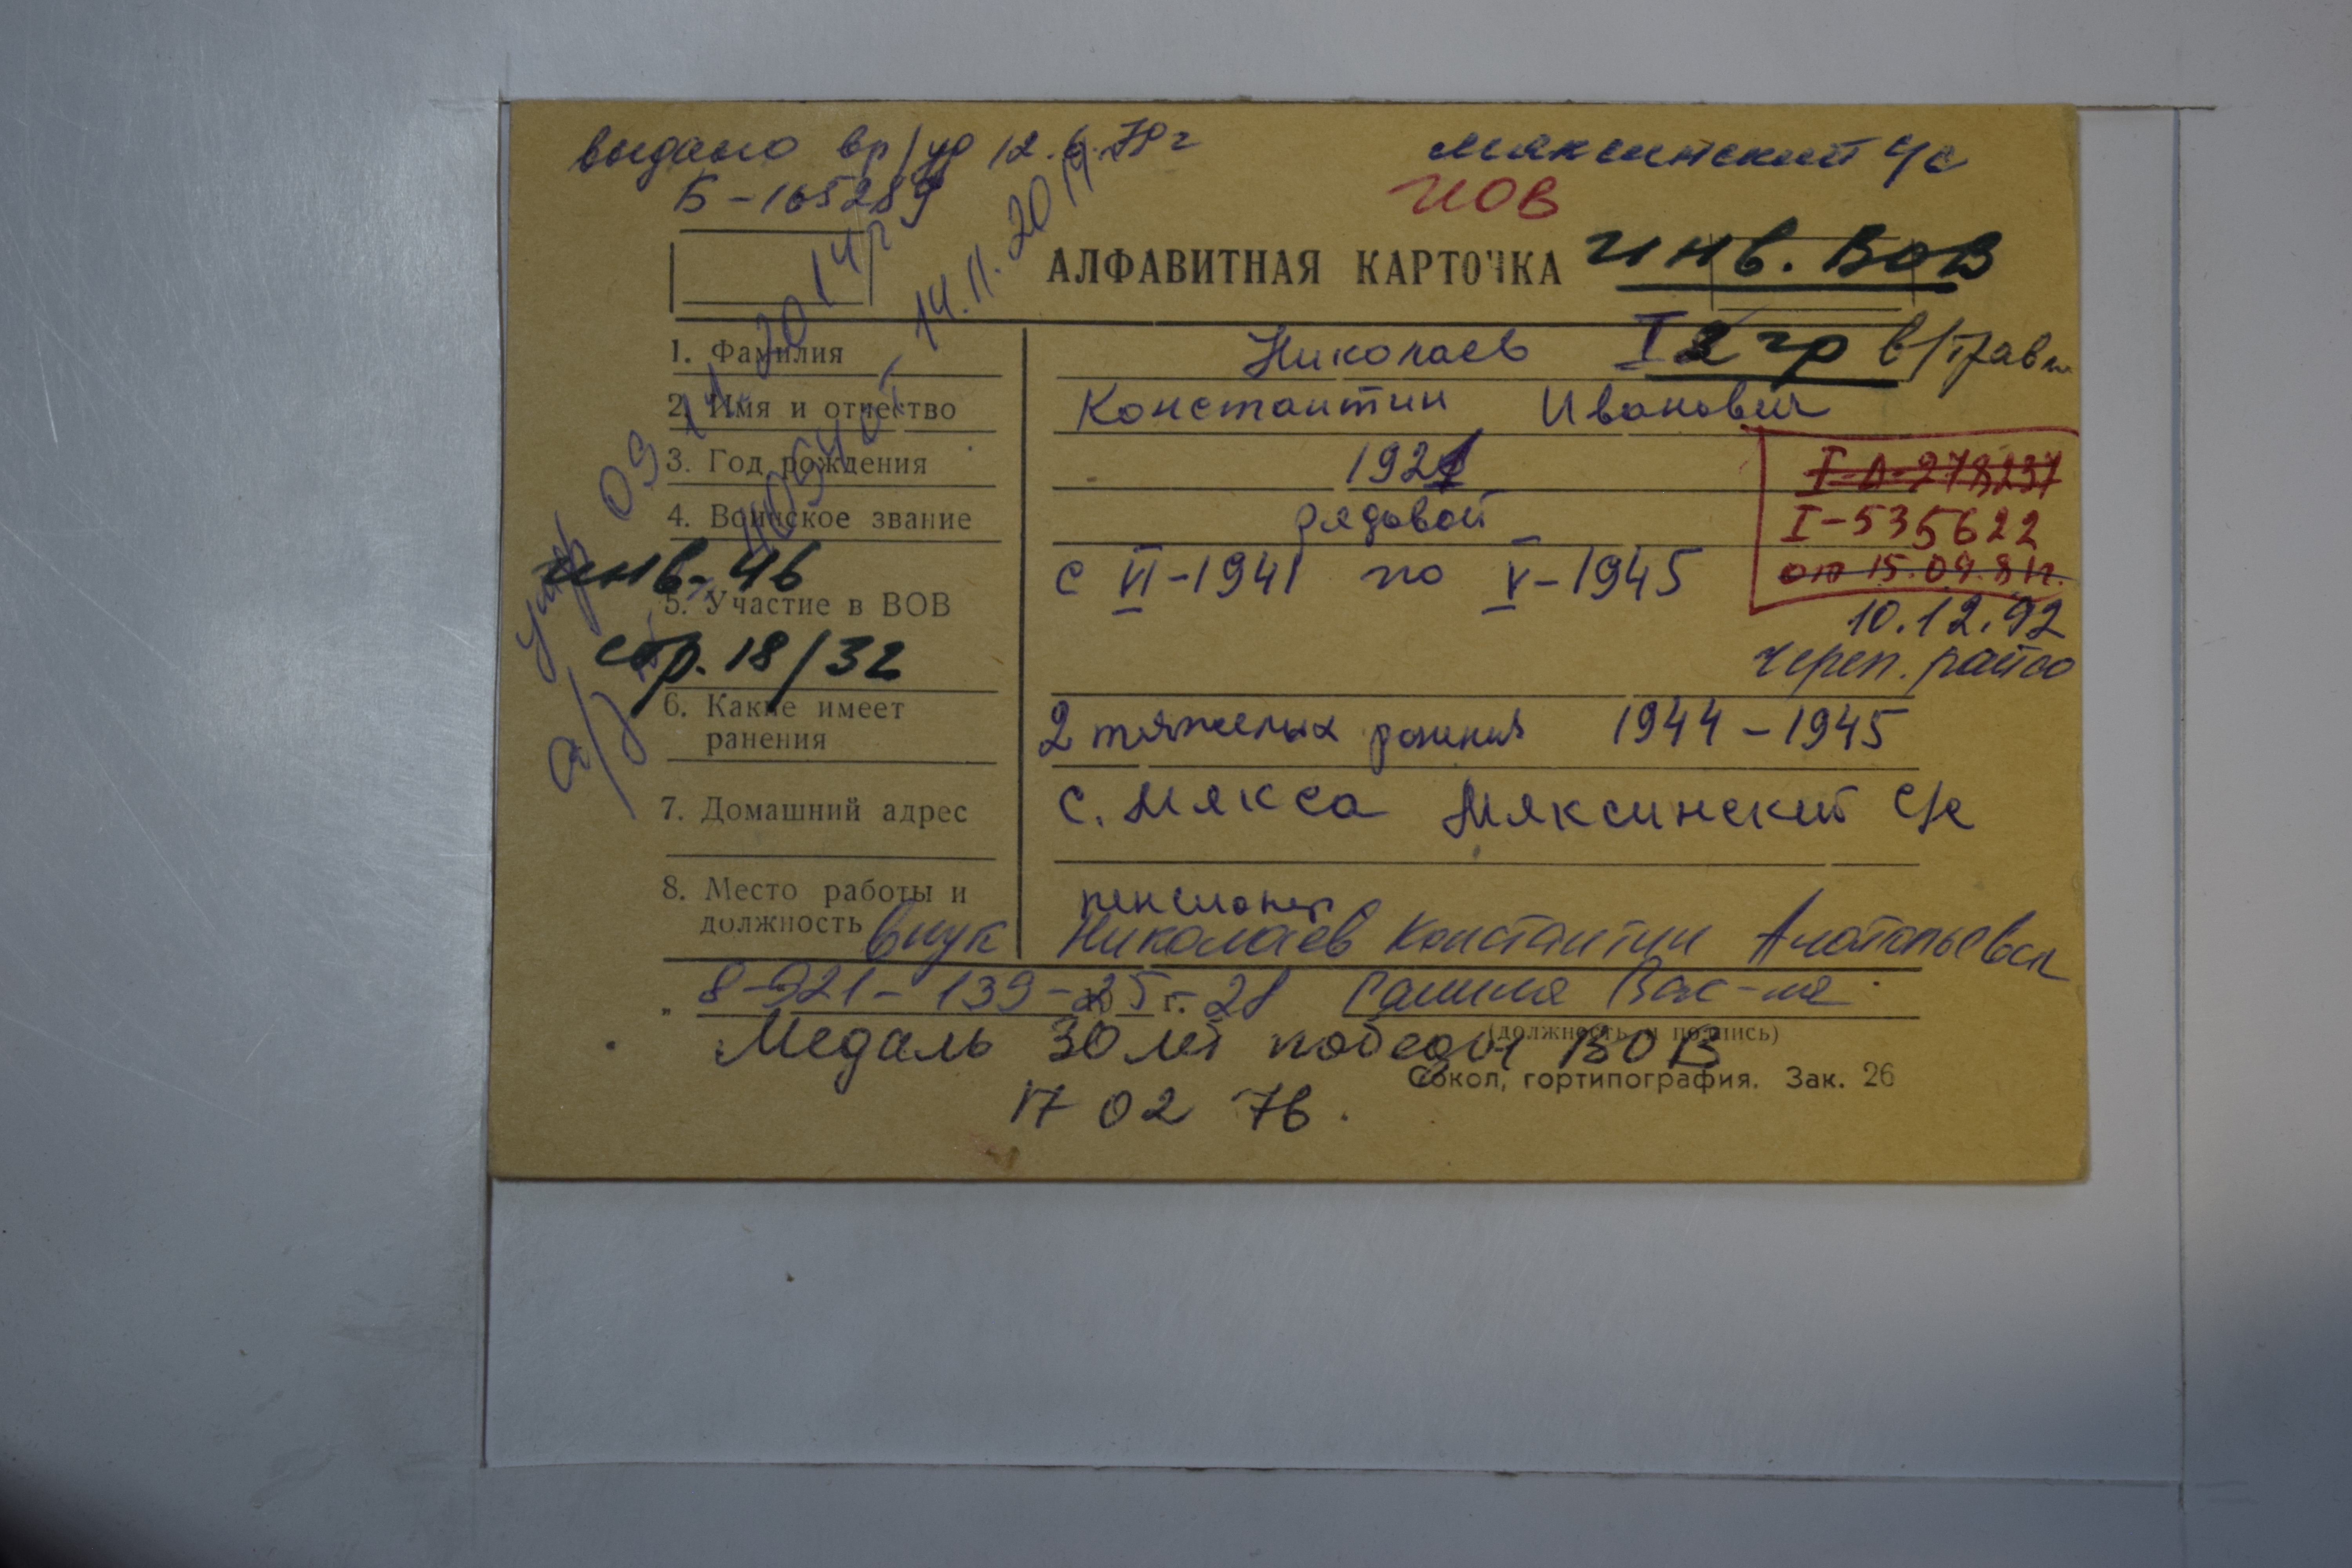 выдано вр/уд 12.6.79г
Б-165289
Мяксинский с/с
ИОВ
АЛФАВИТНАЯ КАРТОЧКА
инв. ВОВ
1. Фамилия Николаев
I 2 гр в/травм
2. Имя и отчество Константин Иванович
3. Год рождения 1921
I-Л-278237
4. Воинское звание рядовой
I-535622
от 15.09.81г.
инв. 46
5. Участие в ВОВ с VI-1941 по V-1945
10.12.92
Череп. райсо
стр. 18/32
6. Какие имеет ранения 2 тяжелых ранения 1944-1945
7. Домашний адрес с. Мякса Мяксинский с/с
8. Место работы и должность пенсионер
внук Николаев Константин Анатольевич
8-921-139-25-28 Галина Вас-на
" 19 г.
(должность и подпись)
Медаль 30 лет победы ВОВ
17 02 76.
Сокол, гортипография. Зак. 26
умер 09.11.2014г
а/з 14.11.2014